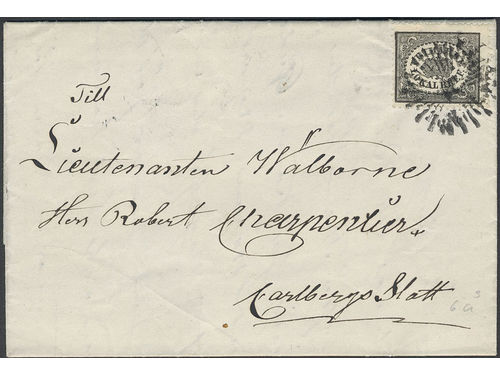 Till
Lieutenanten Wälborne
Herr Robert Charpentier
Carlbergs Slott
6a